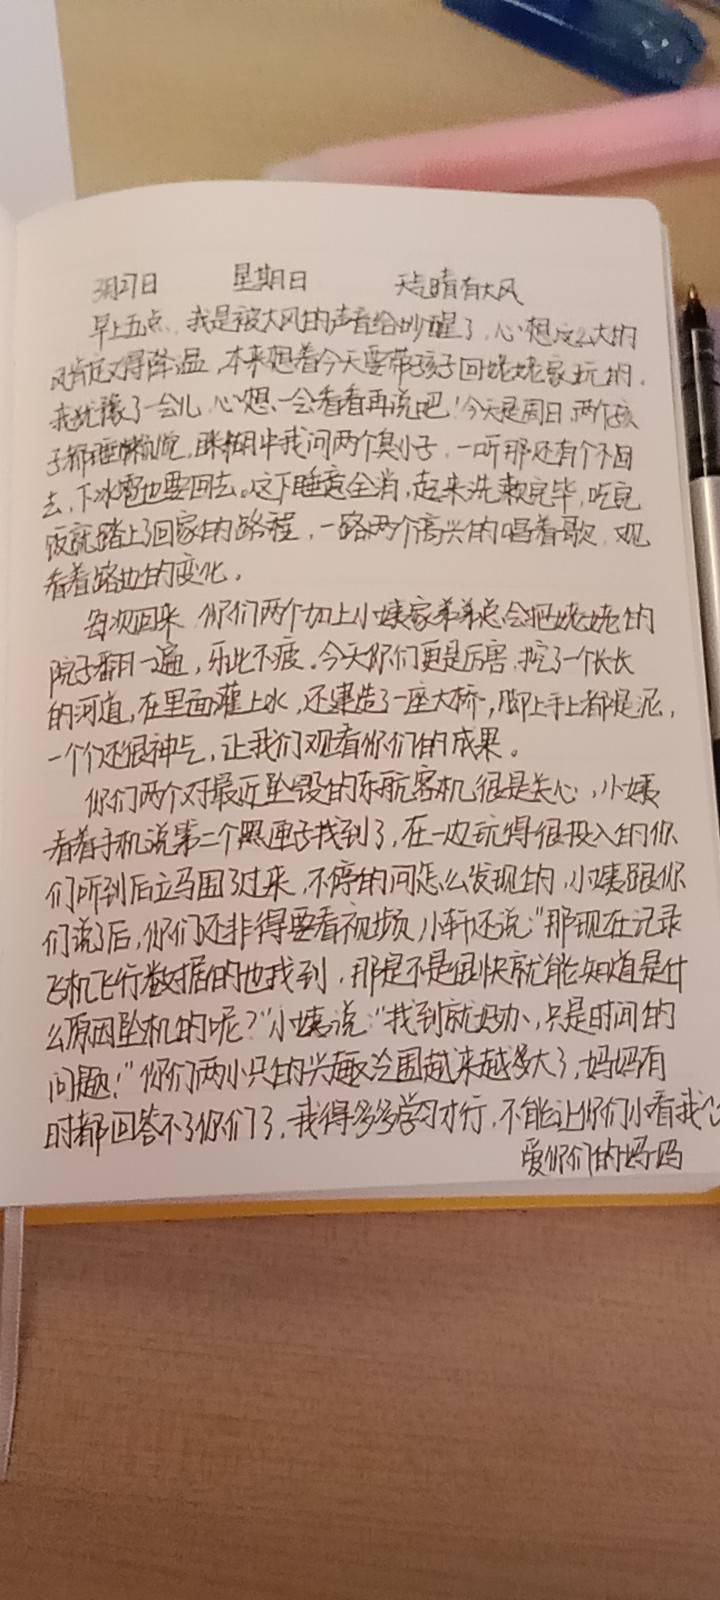 3月27日 星期日 天气晴有大风
早上五点、我是被大风的声音给吵醒了,心想这么大的
风肯定又得降温,本来想着今天要带孩子回姥姥家玩的,
我犹豫了一会儿,心想、一会看看再说吧!今天是周日,两个孩
子都睡懒觉,眯糊中我问两个臭小子,一听那还有个不回
去,下冰雹也要回去。这下睡意全消,起来洗漱完毕,吃完
饭就踏上了回家的路程,一路两个高兴的唱着歌,观
看着路边的变化。
每次回来,你们两个加上小姨家弟弟总会把姥姥的
院子翻一遍,乐此不疲。今天你们更是厉害,挖了一个长长
的河道,在里面灌上水,还建造了一座大桥,脚上手上都是泥,
一个个还很神气,让我们观看你们的成果。
你们两个对最近坠毁的东航客机很是关心,小姨
看着手机说第二个黑匣子找到了,在一边玩得很投入的你
们听到后立马围了过来,不停的问怎么发现的,小姨跟你
们说了后,你们还非得要看视频,小轩还说:“那现在记录
飞机飞行数据的也找到,那是不是很快就能知道是什
么原因坠机的呢?”小姨说:“找到就好办,只是时间的
问题!”你们两小只的兴趣范围越来越多大了,妈妈有
时都回答不了你们了,我得多多学习才行,不能让你们小看我
爱你们的妈妈